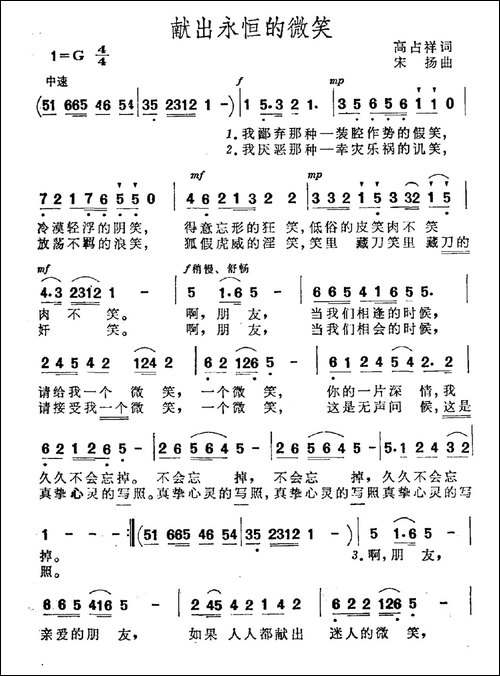 献出永恒的微笑
1=G 4/4
高占祥词
宋 扬曲
中速 f mp
(51 665 46 54 | 35 2312 1 -) | 1 5.3 2 1 | 3 5 6 5 6 1 1 0 |
1.我鄙弃那种一装腔作势的假笑,
2.我厌恶那种一幸灾乐祸的讥笑,
mf mp
7 2 1 7 6 5 5 0 | 4 6 2 1 3 2 2 | 3 5 1 5 3 32 1 5 |
冷漠轻浮的阴笑, 得意忘形的狂 笑,低俗的皮笑肉不 笑
放荡不羁的浪笑, 狐假虎威的淫 笑,笑里 藏刀笑里 藏刀的
mf f稍慢、舒畅
4.3 2312 1 - | 5 1.6 5 - | 6 6 5 4 1 6 5 5. |
肉 不 笑。 啊,朋 友, 当我们相逢的时候,
奸 笑。 啊,朋 友, 当我们相会的时候,
2 4 5 4 2 124 2 | 6 2 126 5 - | 6 1 2 4 5 4 2. 2 |
请给我一个 微 笑, 一个 微 笑, 你的一片深 情,我
请接受我一个微 笑, 一个 微 笑, 这是无声问 候,这是
6 2 1 2 6 5 - | 2 6 5 6 4 5 - | 2 6 5 6 4 5 - | 5.1 2 4 3 2 |
久久不会忘 掉。 不会忘 掉, 不会忘 掉, 久久不会忘
真挚心灵的写 照。真挚心灵的写 照,真挚心灵的写 照真挚心灵的写
1 - - - :‖ (51 665 46 54 | 35 2312 1 -) | 5 1.6 5 - |
掉。 3.啊,朋 友,
照。
6 6 5 416 5 - | 2 45 4 2 1 4 2 | 6 2 2 2 126 5 - |
亲爱的朋 友, 如果 人人都献出 迷人的微 笑,